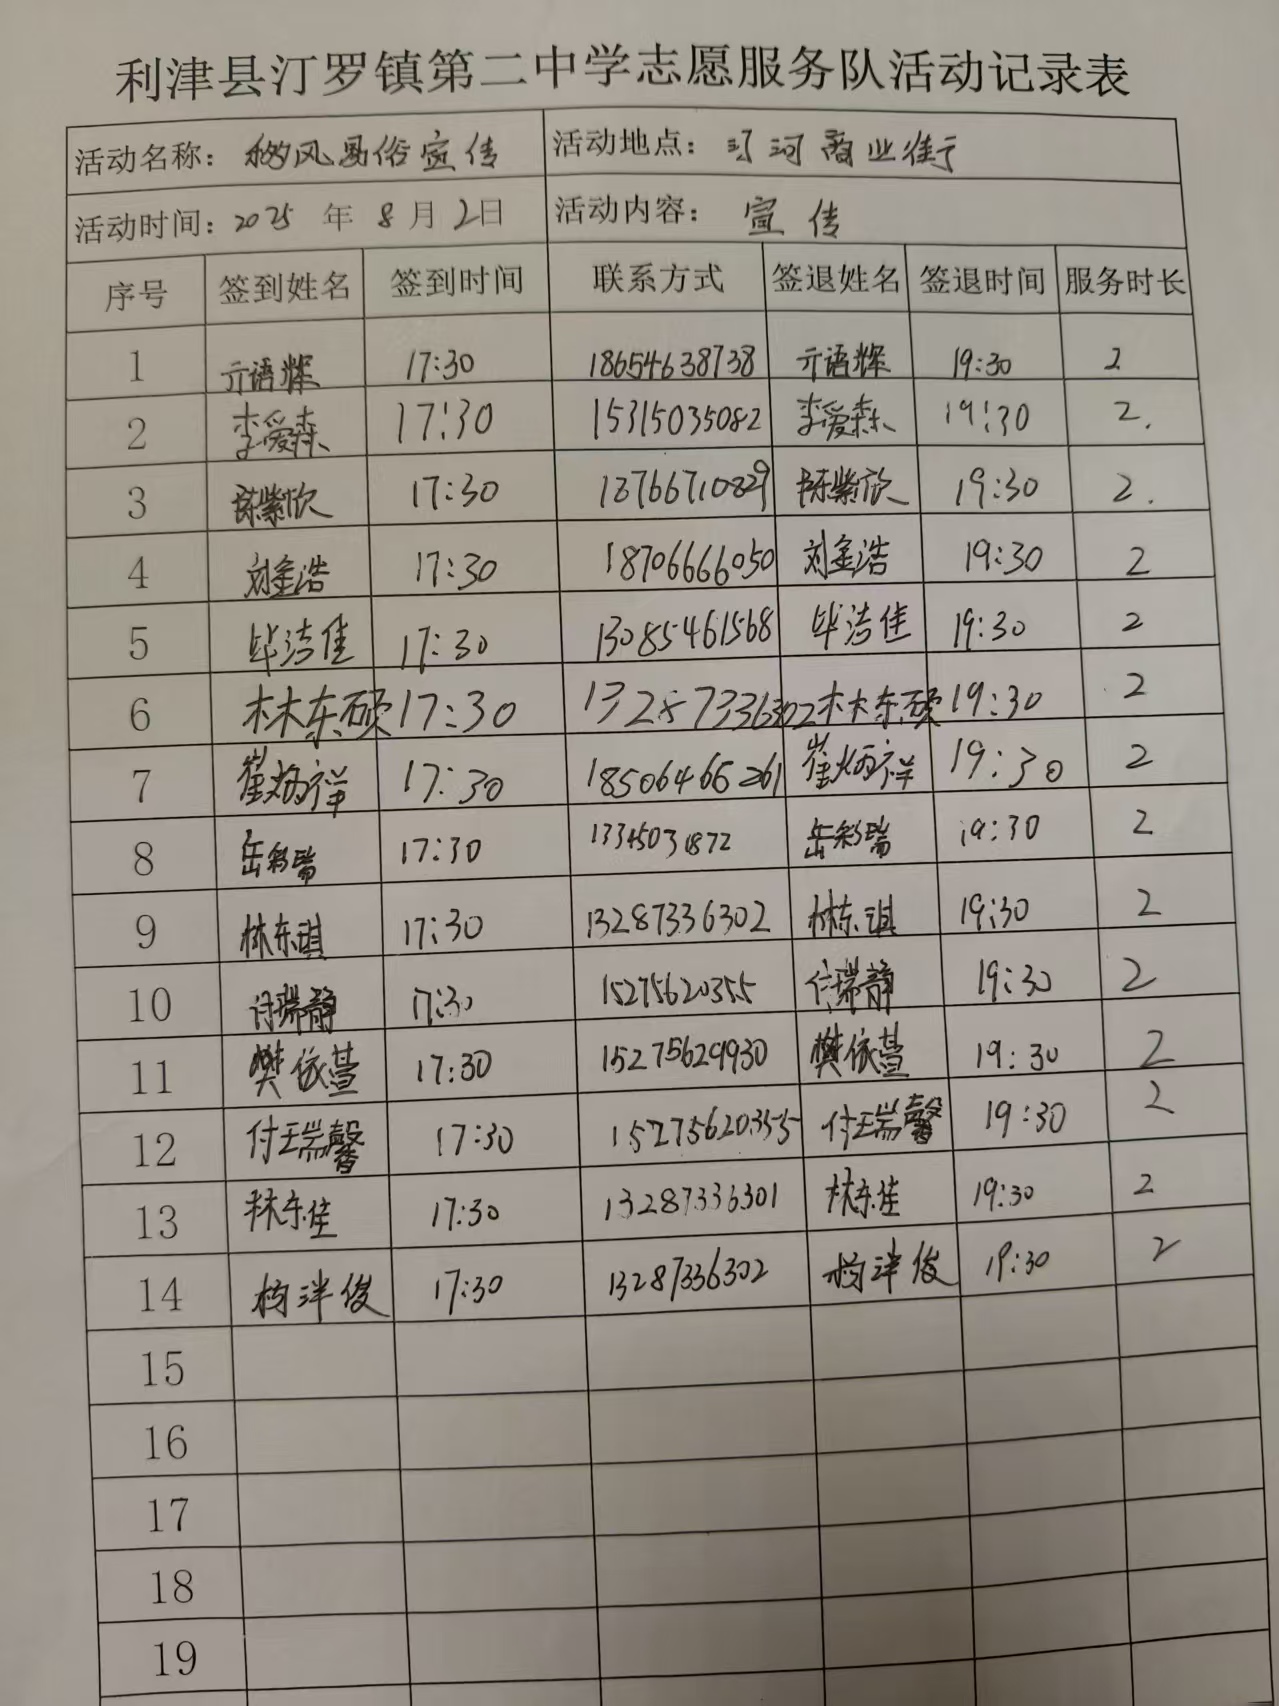 利津县汀罗镇第二中学志愿服务队活动记录表
活动名称：移风易俗宣传 活动地点：汀河商业街
活动时间：2025 年 8 月 2日 活动内容：宣传
序号 签到姓名 签到时间 联系方式 签退姓名 签退时间 服务时长
1 亓语辉 17:30 18654638738 亓语辉 19:30 2
2 李爱森 17:30 15315035082 李爱森 19:30 2.
3 陈紫欣 17:30 18766710829 陈紫欣 19:30 2.
4 刘金浩 17:30 18706666050 刘金浩 19:30 2
5 毕洁佳 17:30 13085461568 毕洁佳 19:30 2
6 林东硕 17:30 13287336302 林东硕 19:30 2
7 崔炳祥 17:30 18506466261 崔炳祥 19:30 2
8 岳彩瑞 17:30 13345031872 岳彩瑞 19:30 2
9 林东琪 17:30 13287336302 林东琪 19:30 2
10 付瑞静 17:30 15275620355 付瑞静 19:30 2
11 樊依萱 17:30 15275629930 樊依萱 19:30 2
12 付瑞馨 17:30 15275620355 付瑞馨 19:30 2
13 林东佳 17:30 13287336301 林东佳 19:30 2
14 杨洋俊 17:30 13287336302 杨洋俊 19:30 2
15
16
17
18
19